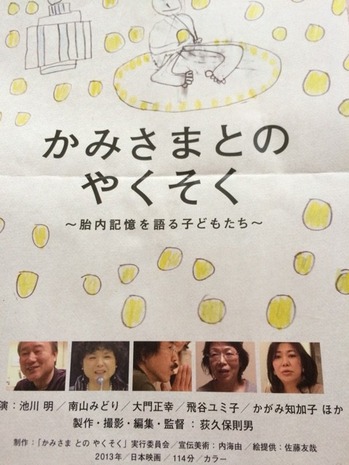 かみさまとの
やくそく
〜胎内記憶を語る子どもたち〜
演：池川 明／南山みどり／大門正幸／飛谷ユミ子／かがみ知加子 ほか
製作・撮影・編集・監督：荻久保則男
制作：「かみさま との やくそく」実行委員会／宣伝美術：内海由／絵提供：佐藤友哉
2013年／日本映画／114分／カラー